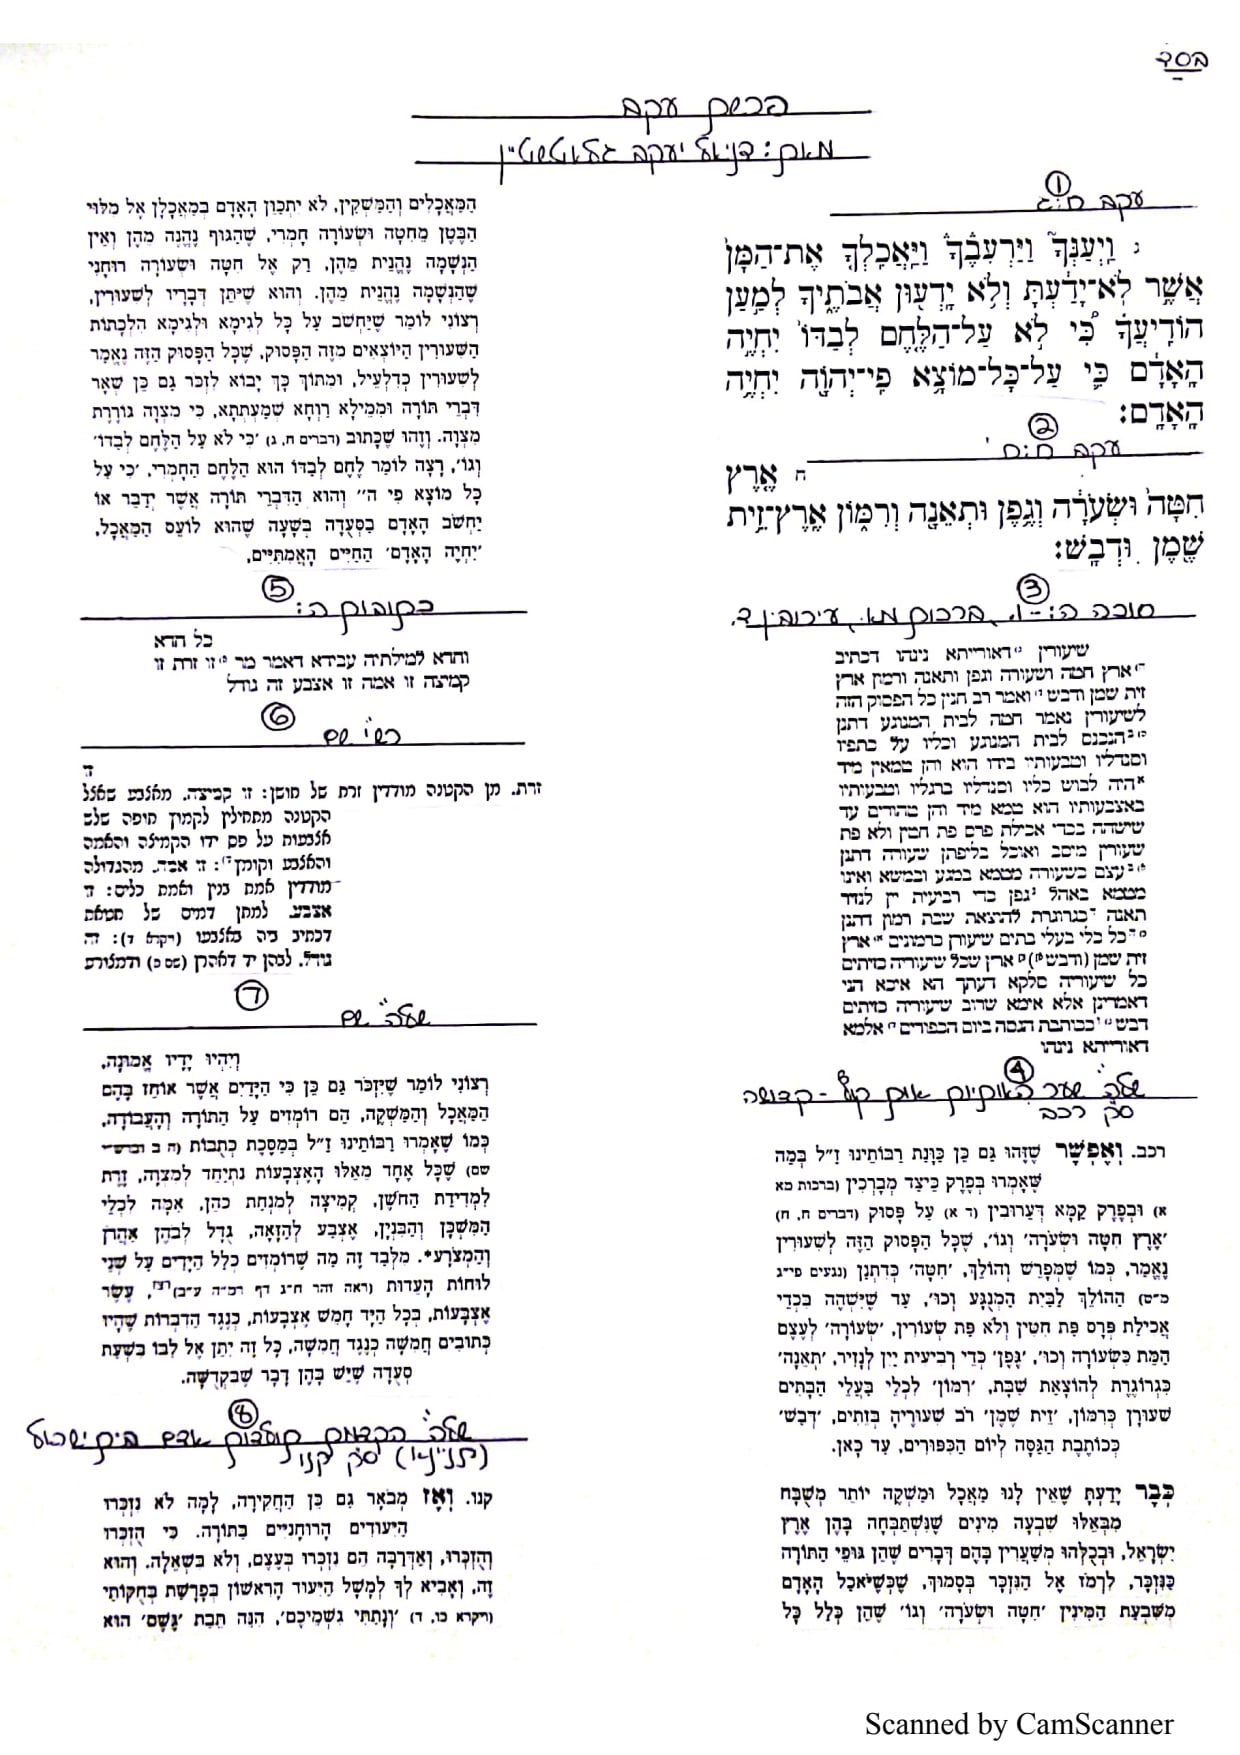 בסד
פרשת עקב
מאת: דניאל יעקב גלאטשטיין
①
עקב ח:ג
ג וַיְעַנְּךָ֮ וַיַּרְעִבֶ֒ךָ֒ וַיַּאֲכִֽלְךָ֤ אֶת־הַמָּן֙
אֲשֶׁ֣ר לֹא־יָדַ֔עְתָּ וְלֹ֥א יָדְע֖וּן אֲבֹתֶ֑יךָ לְמַ֣עַן
הוֹדִֽיעֲךָ֗ כִּ֠י לֹ֣א עַל־הַלֶּ֤חֶם לְבַדּוֹ֙ יִחְיֶ֣ה
הָֽאָדָ֔ם כִּ֛י עַל־כָּל־מוֹצָ֥א פִֽי־יְהוָ֖ה יִחְיֶ֥ה
הָאָדָֽם:
②
עקב ח:ח
ח אֶ֤רֶץ
חִטָּה֙ וּשְׂעֹרָ֔ה וְגֶ֥פֶן וּתְאֵנָ֖ה וְרִמּ֑וֹן אֶֽרֶץ־זֵ֥ית
שֶׁ֖מֶן וּדְבָֽשׁ:
③
סוכה ה:-ו. ברכות מא. עירובין ד.
שיעורין דאורייתא נינהו דכתיב
ארץ חטה ושעורה וגפן ותאנה ורמון ארץ
זית שמן ודבש ואמר רב חנין כל הפסוק הזה
לשיעורין נאמר חטה לבית המנוגע דתנן
הנכנס לבית המנוגע וכליו על כתפיו
וסנדליו וטבעותיו בידו הוא והן טמאין מיד
היה לבוש כליו וסנדליו ברגליו וטבעותיו
באצבעותיו הוא טמא מיד והן טהורים עד
שישהה בכדי אכילת פרס פת חטין ולא פת
שעורין מיסב ואוכל בליפתן שעורה דתנן
עצם כשעורה מטמא במגע ובמשא ואינו
מטמא באהל גפן כדי רביעית יין לנזיר
תאנה כגרוגרת להוצאת שבת רמון דתנן
כל כלי בעלי בתים שיעורן כרמונים ארץ
זית שמן (ודבש) ארץ שכל שיעוריה כזיתים
כל שיעוריה סלקא דעתך הא איכא הני
דאמרינן אלא אימא שרוב שיעוריה כזיתים
דבש ככותבת הגסה ביום הכפורים אלמא
דאורייתא נינהו
④
של"ה שער האותיות אות קו"ף - קדושה
ס"ק רכב
רכב. וְאֶפְשָׁר שֶׁזֶּהוּ גַּם כֵּן כַּוָּנַת רַבּוֹתֵינוּ זַ"ל בְּמַה
שֶּׁאָמְרוּ בְּפֶרֶק כֵּיצַד מְבָרְכִין (ברכות מא
א) וּבְפֶרֶק קַמָּא דְעֵרוּבִין (ד א) עַל פָּסוּק (דברים ח, ח)
'אֶרֶץ חִטָּה וּשְׂעֹרָה' וְגוֹ', שֶׁכָּל הַפָּסוּק הַזֶּה לְשִׁעוּרִין
נֶאֱמַר, כְּמוֹ שֶׁמְּפָרֵשׁ וְהוֹלֵךְ, 'חִטָּה' כְּדִתְנַן (נגעים פי"ג
מ"ט) הַהוֹלֵךְ לַבַּיִת הַמְנֻגָּע וְכוּ', עַד שֶׁיִּשְׁהֶה בִּכְדֵי
אֲכִילַת פְּרָס פַּת חִטִּין וְלֹא פַּת שְׂעוֹרִין, 'שְׂעוֹרָה' לְעֶצֶם
הַמֵּת כִּשְׂעוֹרָה וְכוּ', 'גֶּפֶן' כְּדֵי רְבִיעִית יַיִן לְנָזִיר, 'תְּאֵנָה'
כִּגְרוֹגֶרֶת לְהוֹצָאַת שַׁבָּת, 'רִמּוֹן' לִכְלֵי בַּעֲלֵי הַבָּתִּים
שִׁעוּרָן כְּרִמּוֹן, 'זֵית שֶׁמֶן' רֹב שִׁעוּרֶיהָ כְּזֵתִים, 'דְּבַשׁ'
כְּכוֹתֶבֶת הַגַּסָּה לְיוֹם הַכִּפּוּרִים, עַד כָּאן.
כְּבָר יָדַעְתָּ שֶׁאֵין לָנוּ מַאֲכָל וּמַשְׁקֶה יוֹתֵר מְשֻׁבָּח
מֵאֵלּוּ שִׁבְעָה מִינִים שֶׁנִּשְׁתַּבְּחָה בָּהֶן אֶרֶץ
יִשְׂרָאֵל, וּבְכֻלְּהוּ מְשַׁעֲרִין בָּהֶם דְּבָרִים שֶׁהֵן גּוּפֵי הַתּוֹרָה
כַּנִּזְכָּר, לִרְמֹז אֶל הַנִּזְכָּר בְּסָמוּךְ, שֶׁכְּשֶׁיֹּאכַל הָאָדָם
מִשִּׁבְעַת הַמִּינִין 'חִטָּה וּשְׂעֹרָה' וְגוֹ' שֶׁהֵן כְּלַל כָּל
הַמַּאֲכָלִים וְהַמַּשְׁקִין, לֹא יִתְכַּוֵּן הָאָדָם בְּמַאֲכָלָן אֶל מִלּוּי
הַבֶּטֶן מֵחִטָּה וּשְׂעוֹרָה חָמְרִי, שֶׁהַגּוּף נֶהֱנֶה מֵהֶן וְאֵין
הַנְּשָׁמָה נֶהֱנֵית מֵהֶן, רַק אֶל חִטָּה וּשְׂעוֹרָה רוּחָנִי
שֶׁהַנְּשָׁמָה נֶהֱנֵית מֵהֶן. וְהוּא שֶׁיִּתֵּן דְּבָרָיו לְשִׁעוּרִין,
רְצוֹנִי לוֹמַר שֶׁיַּחְשֹׁב עַל כָּל לְגִימָא וּלְגִימָא הִלְכָתוֹת
הַשִּׁעוּרִין הַיּוֹצְאִים מִזֶּה הַפָּסוּק, שֶׁכָּל הַפָּסוּק הַזֶּה נֶאֱמַר
לְשִׁעוּרִין כְּדִלְעֵיל, וּמִתּוֹךְ כָּךְ יָבוֹא לִזְכֹּר גַּם כֵּן שְׁאָר
דִּבְרֵי תּוֹרָה וּמִמֵּילָא רָוְחָא שְׁמַעְתְּתָא, כִּי מִצְוָה גּוֹרֶרֶת
מִצְוָה. וְזֶהוּ שֶׁכָּתוּב (דברים ח, ג) 'כִּי לֹא עַל הַלֶּחֶם לְבַדּוֹ'
וְגוֹ', רָצָה לוֹמַר לֶחֶם לְבַדּוֹ הוּא הַלֶּחֶם הַחָמְרִי, 'כִּי עַל
כָּל מוֹצָא פִי ה'' וְהוּא הַדִּבְרֵי תּוֹרָה אֲשֶׁר יְדַבֵּר אוֹ
יַחְשֹׁב הָאָדָם בַּסְּעֻדָּה בְּשָׁעָה שֶׁהוּא לוֹעֵס הַמַּאֲכָל,
'יִחְיֶה הָאָדָם' הַחַיִּים הָאֲמִתִּיִּים,
⑤
כתובות ה:
כל הדא
והדא למילתיה עבידא דאמר מר זו זרת זו
קמיצה זו אמה זו אצבע זה גודל
⑥
רש"י שם
זו
זרת. מן הקטנה מודדין זרת של חושן: זו קמיצה. מאצבע שאצל
הקטנה מתחילין לקמוץ חופה שלש
אצבעות על פס ידו הקמיצה והאמה
והאצבע וקומץ: זו אמה. מהגדולה
מודדין אמת בנין ואמת כלים: זו
אצבע. למתן דמים של חטאת
דכתיב ביה באצבעו (ויקרא ד): זה
גודל. לבהן יד דאהרן (שם ח) ודמצורע
⑦
של"ה שם
וְיִהְיוּ יָדָיו אֱמוּנָה,
רְצוֹנִי לוֹמַר שֶׁיִּזְכֹּר גַּם כֵּן כִּי הַיָּדַיִם אֲשֶׁר אוֹחֵז בָּהֶם
הַמַּאֲכָל וְהַמַּשְׁקֶה, הֵם רוֹמְזִים עַל הַתּוֹרָה וְהָעֲבוֹדָה,
כְּמוֹ שֶׁאָמְרוּ רַבּוֹתֵינוּ זַ"ל בְּמַסֶּכֶת כְּתֻבּוֹת (ה ב וברש"י
שם) שֶׁכָּל אֶחָד מֵאֵלּוּ הָאֶצְבָּעוֹת נִתְיַחֵד לְמִצְוָה, זֶרֶת
לִמְדִידַת הַחֹשֶׁן, קְמִיצָה לְמִנְחַת כֹּהֵן, אַמָּה לִכְלֵי
הַמִּשְׁכָּן וְהַבִּנְיָן, אֶצְבַּע לְהַזָּאָה, גֻּדָל לְבֹהֶן אַהֲרֹן
וְהַמְּצֹרָע*. מִלְּבַד זֶה מַה שֶּׁרוֹמְזִים כְּלַל הַיָּדַיִם עַל שְׁנֵי
לוּחוֹת הָעֵדוּת (ראה זהר ח"ג דף רמ"ה ע"ב), עֶשֶׂר
אֶצְבָּעוֹת, בְּכָל הַיָּד חָמֵשׁ אֶצְבָּעוֹת, כְּנֶגֶד הַדִּבְּרוֹת שֶׁהָיוּ
כְּתוּבִים חֲמִשָּׁה כְּנֶגֶד חֲמִשָּׁה, כָּל זֶה יִתֵּן אֶל לִבּוֹ בִּשְׁעַת
סְעֻדָּה שֶׁיֵּשׁ בָּהֶן דָּבָר שֶׁבִּקְדֻשָּׁה.
⑧
של"ה הקדמת תולדות אדם בית ישראל
(תנינא) ס"ק קנו
קנו. וְאָז מְבֹאָר גַּם כֵּן הַחֲקִירָה, לָמָּה לֹא נִזְכְּרוּ
הַיִּעוּדִים הָרוּחָנִיִּים בַּתּוֹרָה. כִּי הֻזְכְּרוּ
וְהֻזְכְּרוּ, וְאַדְּרַבָּה הֵם נִזְכְּרוּ בְּעֶצֶם, וְלֹא בִּשְׁאֵלָה. וְהוּא
זֶה, וְאָבִיא לְךָ לְמָשָׁל הַיִּעוּד הָרִאשׁוֹן בְּפָרָשַׁת בְּחֻקּוֹתַי
(ויקרא כו, ד) 'וְנָתַתִּי גִשְׁמֵיכֶם', הִנֵּה תֵּבַת 'גֶּשֶׁם' הוּא
Scanned by CamScanner